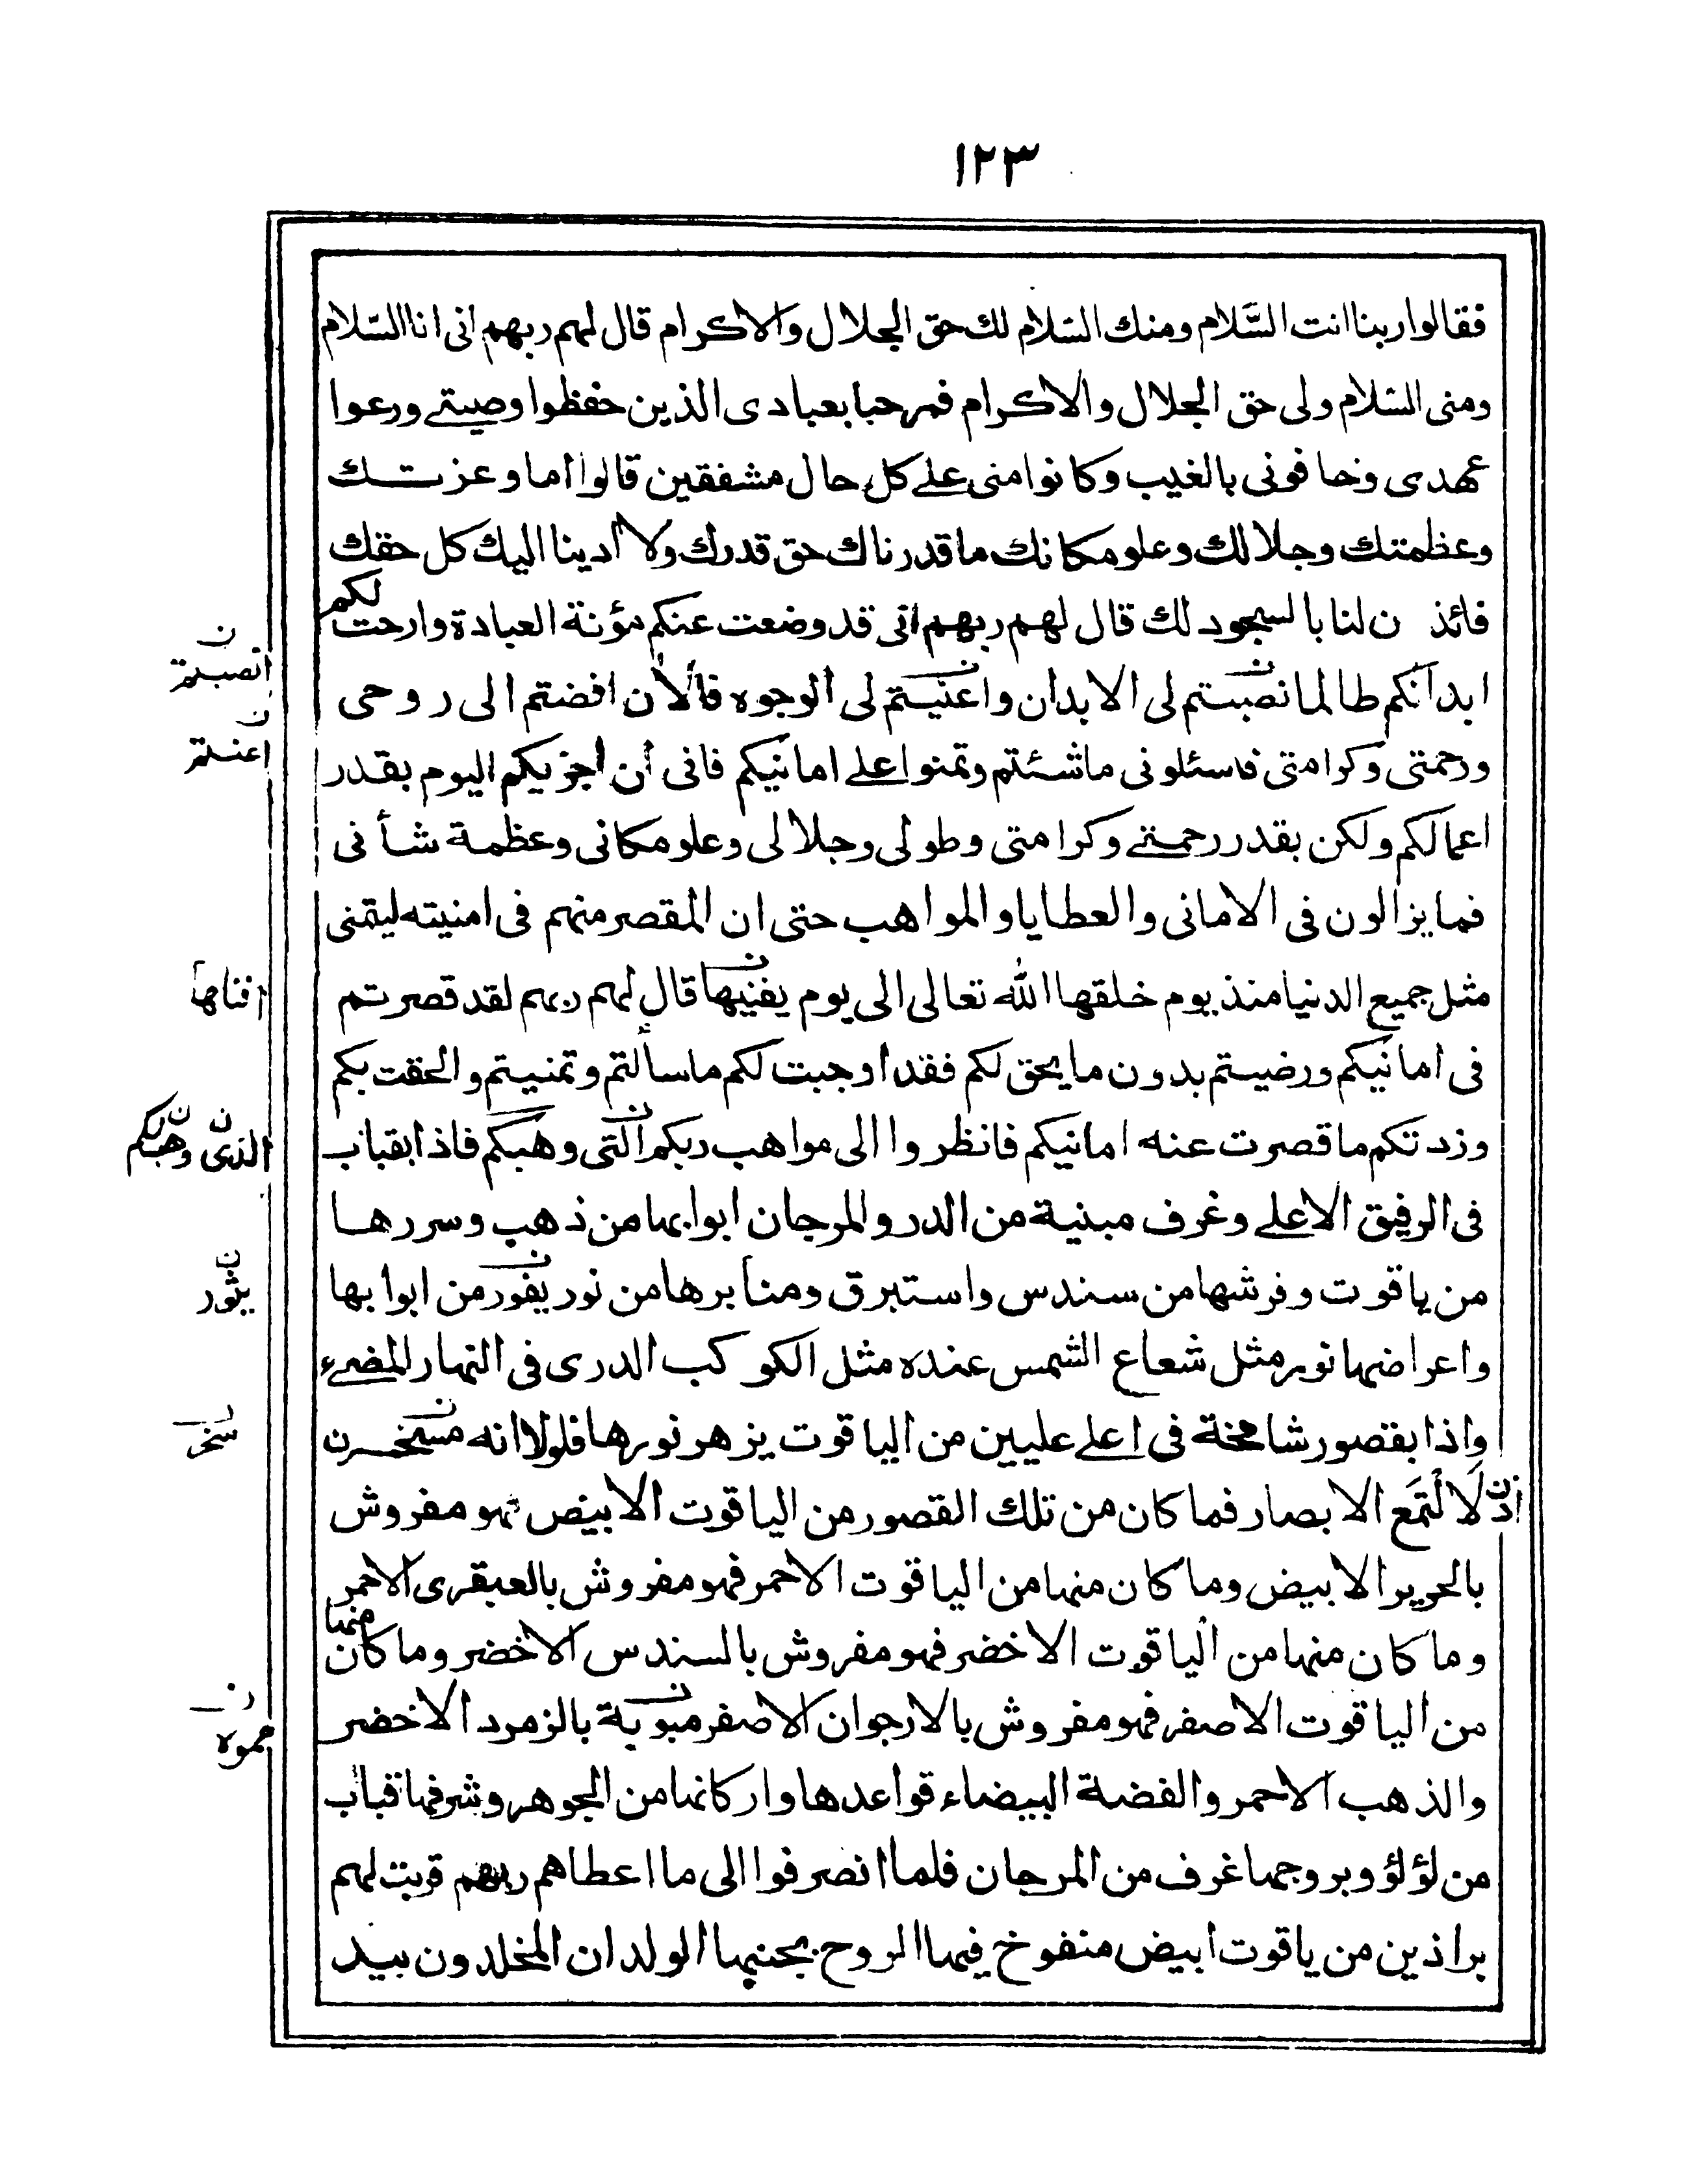 ١٢٣
فقالوا ربنا انت السَّلام ومنك السّلام لك حق الجلال والاكرام قال لهم ربهم انى انا السّلام
ومنى السّلام ولى حق الجلال والاكرام فمرحبا بعبادى الذين حفظوا وصيتى ورعوا
عهدى وخافونى بالغيب وكانوا منى على كل حال مشفقين قالوا اما وعزتك
وعظمتك وجلالك وعلو مكانك ما قدرناك حق قدرك ولا ادينا اليك كل حقك
فائذن لنا بالسجود لك قال لهم ربهم انى قد وضعت عنكم مؤنة العبادة وارحت لكم
ابدانكم طالما نصبتم لى الابدان واعنيتم لى الوجوه فالأن افضتم الى روحى
ورحمتى وكرامتى فاسئلونى ما شئتم وتمنوا على امانيكم فانى أن أجزيكم اليوم بقدر
اعمالكم ولكن بقدر رحمتى وكرامتى وطولى وجلالى وعلو مكانى وعظمة شأنى
فما يزالون فى الامانى والعطايا والمواهب حتى ان المقصر منهم فى امنيته ليتمنى
مثل جميع الدنيا منذ يوم خلقها الله تعالى الى يوم يفنيها قال لهم ربهم لقد قصرتم
فى امانيكم ورضيتم بدون ما يحق لكم فقد اوجبت لكم ما سألتم وتمنيتم والحقت بكم
وزدتكم ما قصرت عنه امانيكم فانظروا الى مواهب ربكم التى وهبكم فاذا بقباب
فى الرفيق الاعلى وغرف مبنية من الدر والمرجان ابوابها من ذهب وسررها
من ياقوت وفرشها من سندس واستبرق ومنابرها من نور يفور من ابوابها
واعراضها نور مثل شعاع الشمس عنده مثل الكوكب الدرى فى النهار المضىء
واذا بقصور شامخة فى اعلى عليين من الياقوت يزهر نورها فلولا انه مسخرن
اذن لَا لْتَمَع الابصار فما كان من تلك القصور من الياقوت الابيض فهو مفروش
بالحرير الابيض وما كان منها من الياقوت الاحمر فهو مفروش بالعبقرى الاحمر
وما كان منها من الياقوت الاخضر فهو مفروش بالسندس الاخضر وما كان منها
من الياقوت الاصفر فهو مفروش بالارجوان الاصفر مبوبة بالزمرد الاخضر
والذهب الاحمر والفضة البيضاء قواعدها واركانها من الجوهر وشرفها قباب
من لؤلؤ وبروجها غرف من المرجان فلما انصرفوا الى ما اعطاهم ربهم قربت لهم
براذين من ياقوت ابيض منفوخ فيها الروح بجنبها الولدان المخلدون بيد
ن
انصبتم
ن
اعنتم
افناها
ن ن
الذى وهبكم
ن
يثور
ن
سخر
ن
مموه